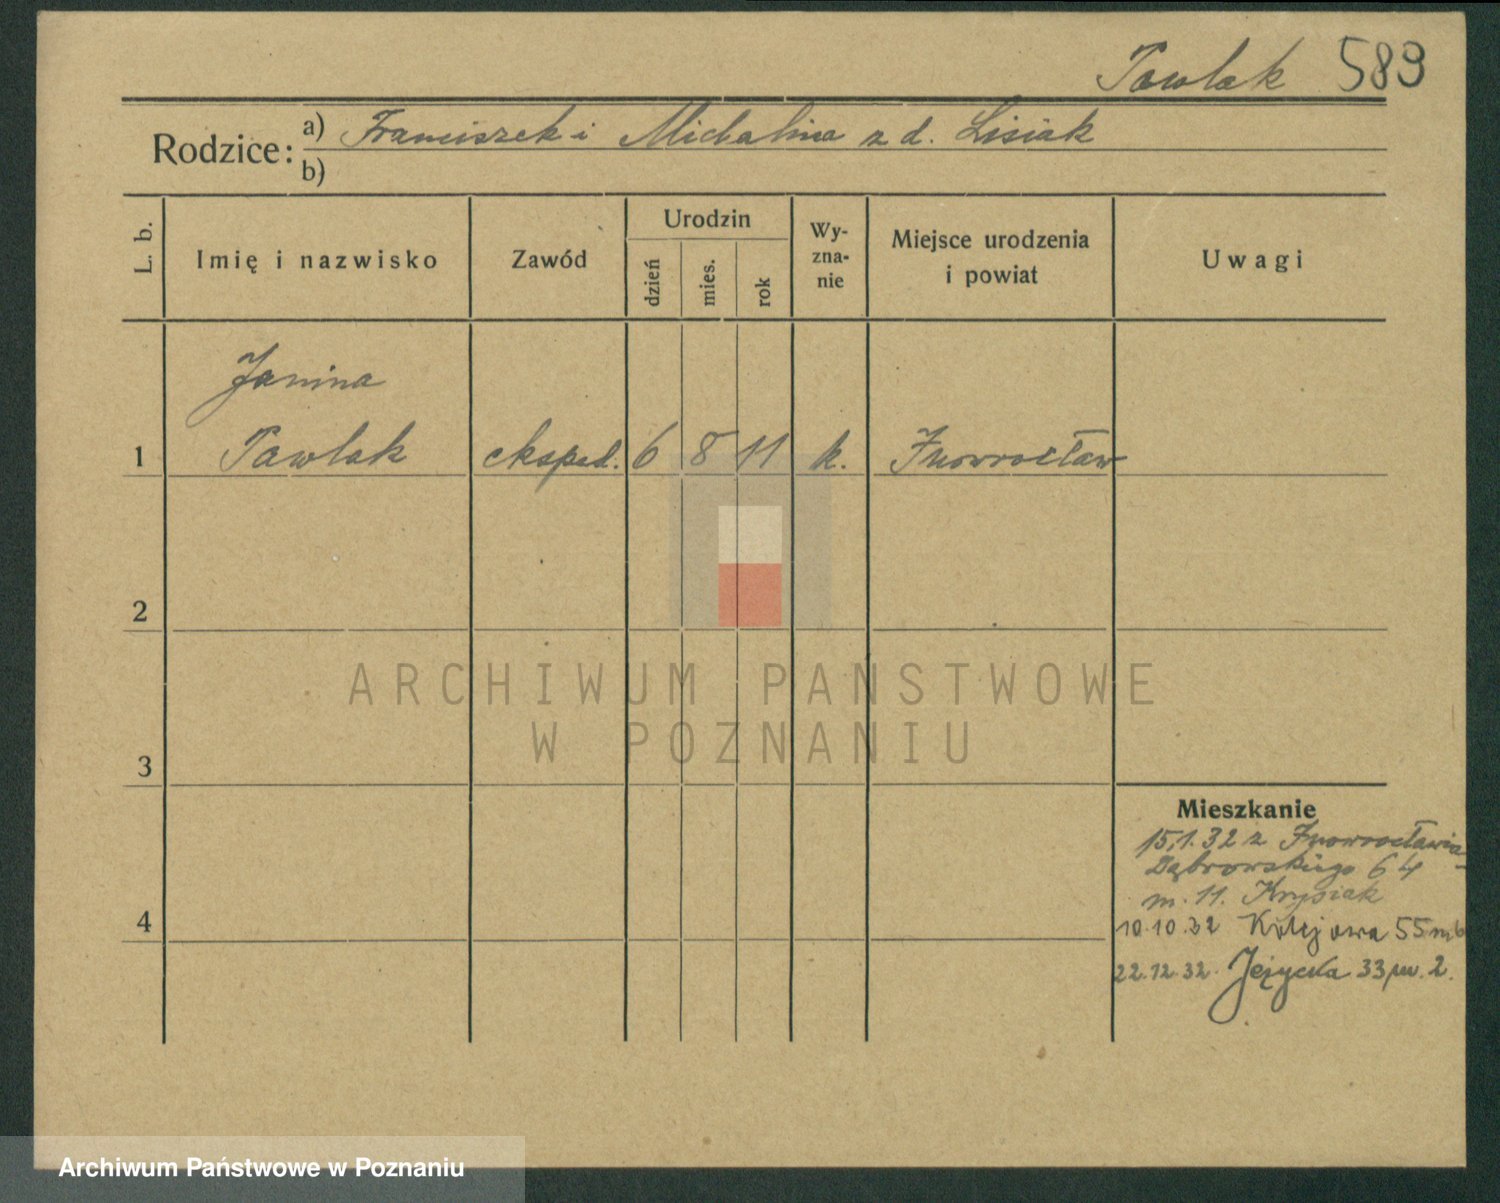 Pawlak 589
Rodzice: a) Franciszek i Michalina z d. Lisiak
b)
L. b.
Imię i nazwisko
Zawód
Urodzin
dzień
mies.
rok
Wy-
zna-
nie
Miejsce urodzenia
i powiat
Uwagi
Janina
1 Pawlak eksped. 6 8 11 k. Inowrocław
2
ARCHIWUM PAŃSTWOWE
W POZNANIU
3
Mieszkanie
15.1.32 z Inowrocławia
Dąbrowskiego 64
m. 11. Krysiak
4
10.10.32 Kolejowa 55 m 6
22.12.32. Jeżycka 33 m. 2.
Archiwum Państwowe w Poznaniu